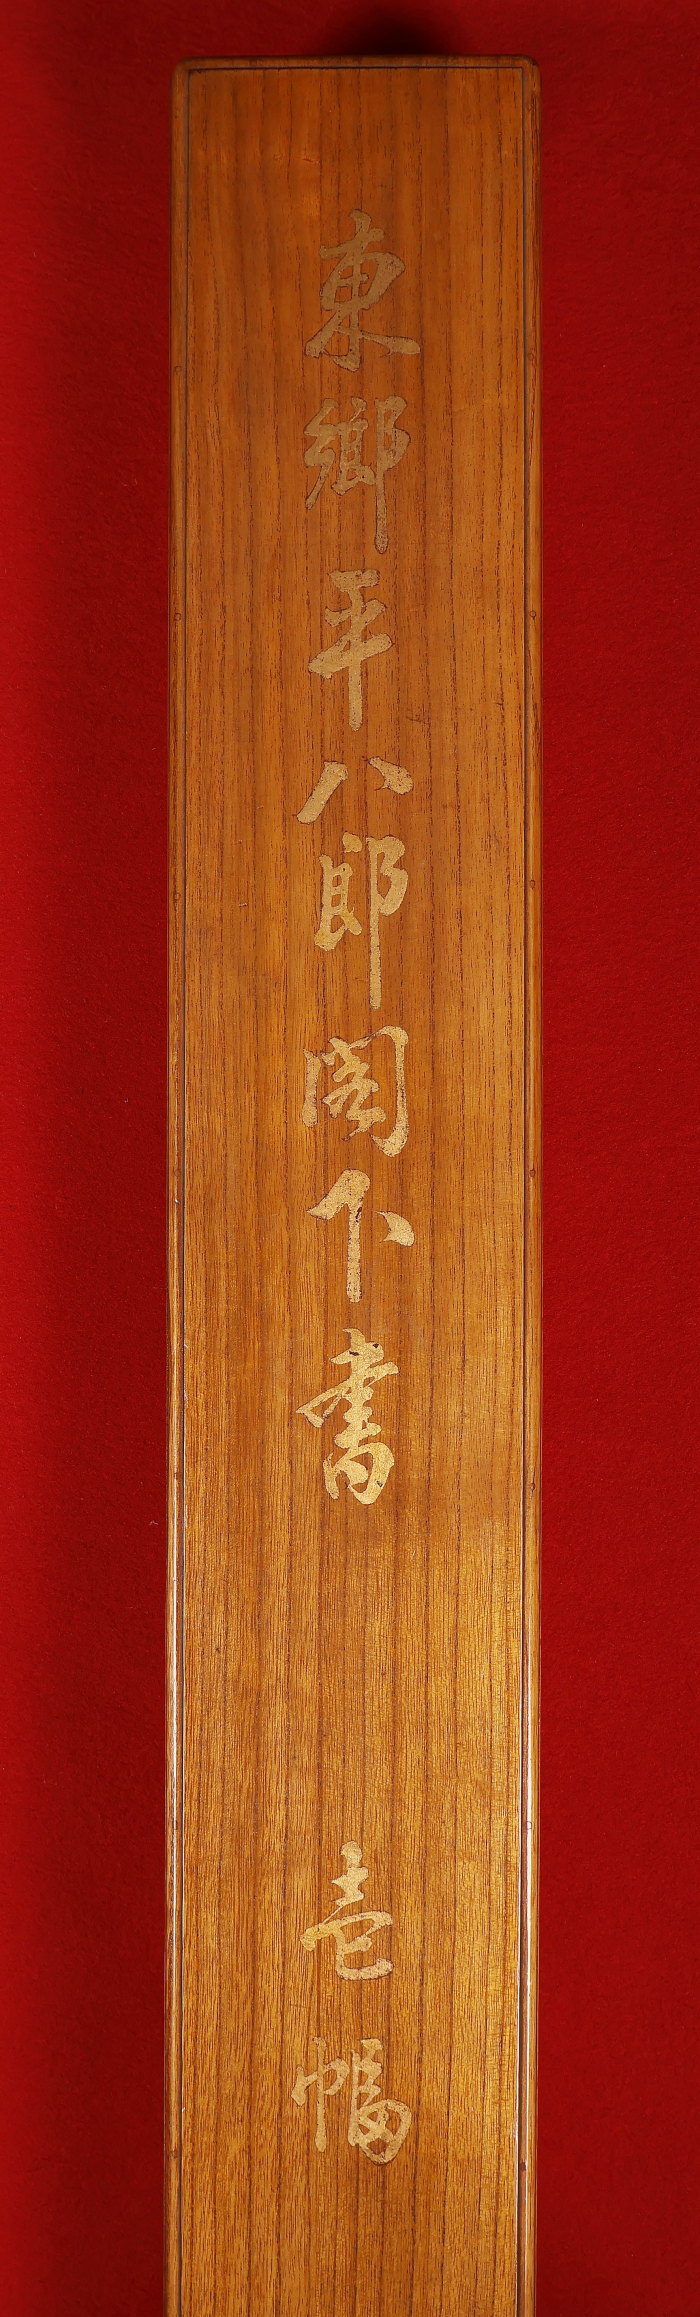 東郷平八郎閣下書 壱幅